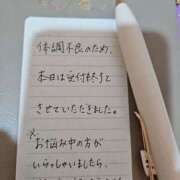 体調不良のため、
本日は受付終了
させていただきました。
※お悩み中の方が
いらっしゃいましたら、